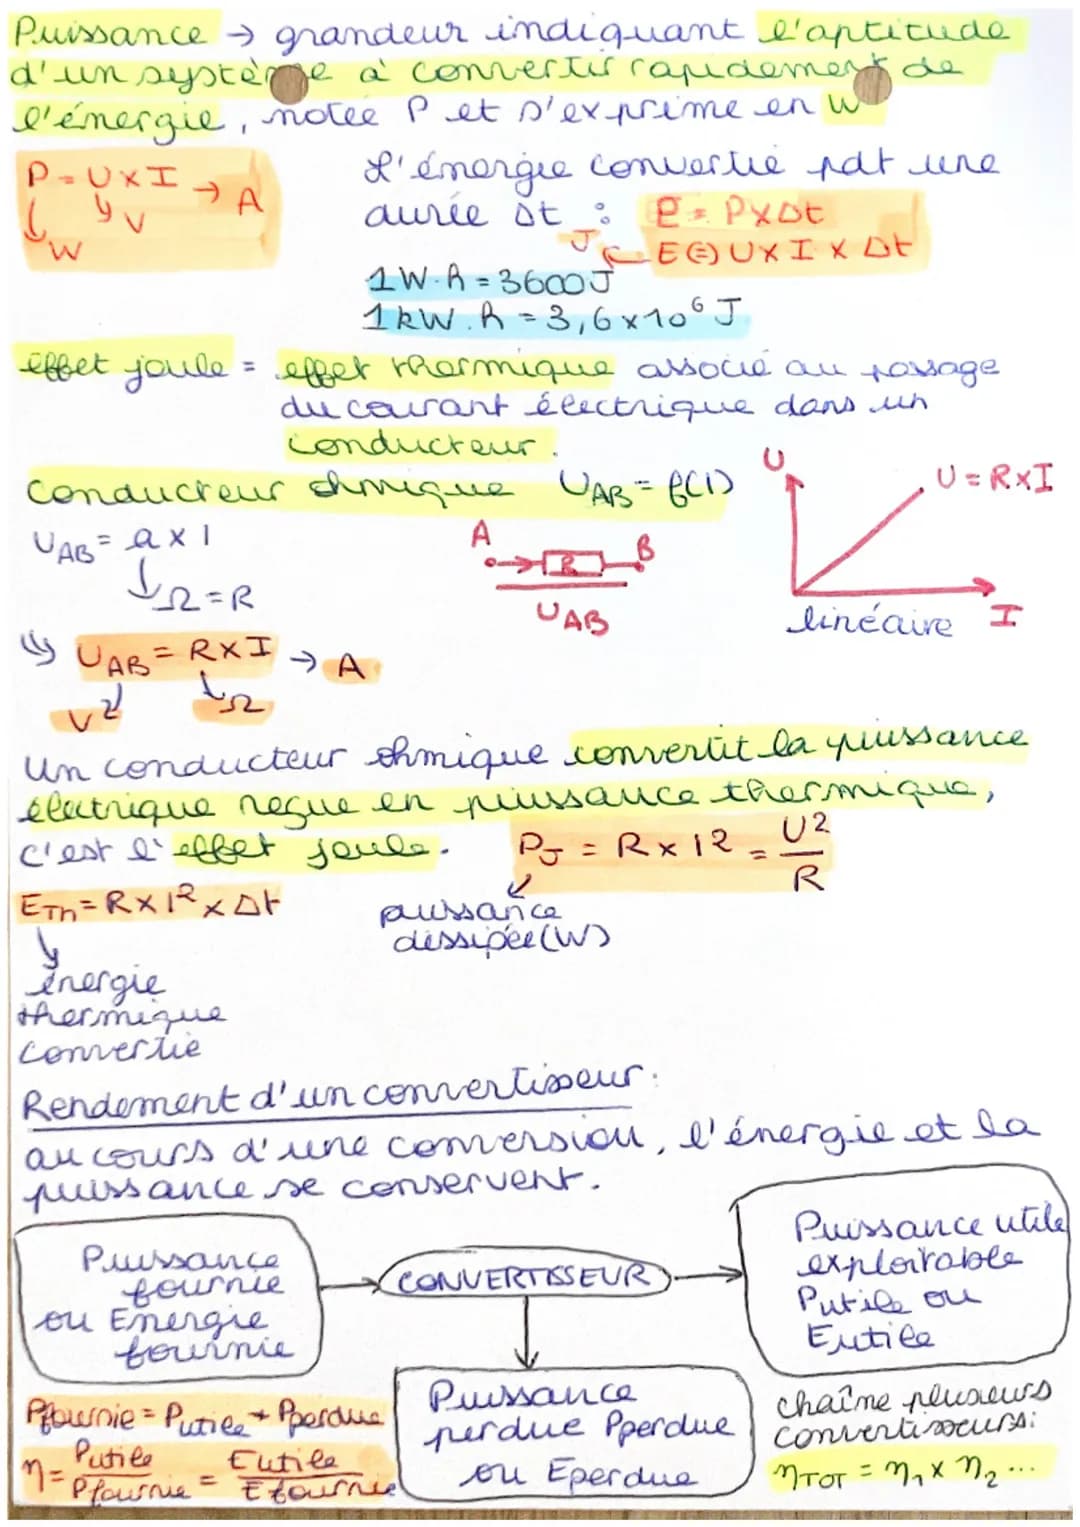 Puissance → grandeur indiquant l'aptitude
d'un système à convertir rapidement de
l'énergie, notée P et s'exprime en W
P = U × I → A
V
W
L'énergie convertie pdt une
durée Δt : E = P×Δt
J ← E (=) U × I × Δt
1 W.h = 3600 J
1 kW.h = 3,6×10⁶ J
effet joule = effet thermique associé au passage
du courant électrique dans un
conducteur.
conducteur ohmique U_AB = f(I)
U
U = R×I
I
linéaire
U_AB = a × I
Ω = R
A
R
B
U_AB
↳ U_AB = R×I → A
V
Ω
Un conducteur ohmique convertit la puissance
électrique reçue en puissance thermique,
c'est l'effet joule.
P_J = R × I² = U²/R
puissance
dissipée (W)
E_Th = R × I² × Δt
énergie
thermique
convertie
Rendement d'un convertisseur:
au cours d'une conversion, l'énergie et la
puissance se conservent.
Puissance
fournie
ou Energie
fournie
CONVERTISSEUR
Puissance utile
exploitable
Putile ou
Eutile
Puissance
perdue Pperdue
ou Eperdue
Pfournie = Putile + Pperdue
η = Putile/Pfournie = Eutile/Efournie
chaîne plusieurs
convertisseurs:
η_TOT = η₁ × η₂ ...